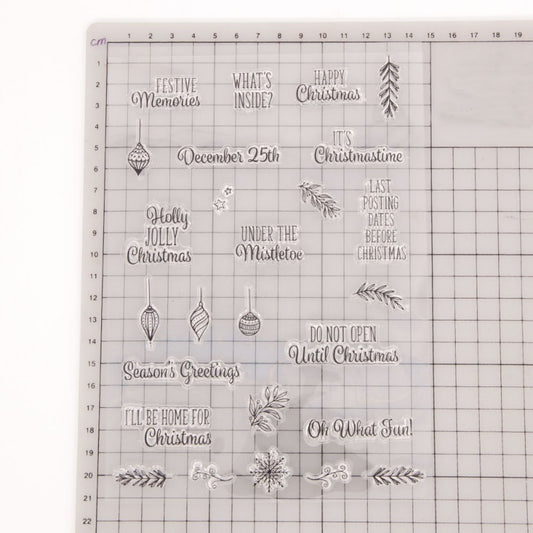 cm
1 2 3 4 5 6 7 8 9 10 11 12 13 14 15 16 17 18 19
1
2
3
4
5
6
7
8
9
10
11
12
13
14
15
16
17
18
19
20
21
22
FESTIVE
Memories
WHAT'S
INSIDE?
HAPPY
Christmas
December 25th
IT'S
Christmastime
Holly
JOLLY
Christmas
UNDER THE
Mistletoe
LAST
POSTING
DATES
BEFORE
CHRISTMAS
DO NOT OPEN
Until Christmas
Season's Greetings
I'LL BE HOME FOR
Christmas
Oh What Fun!